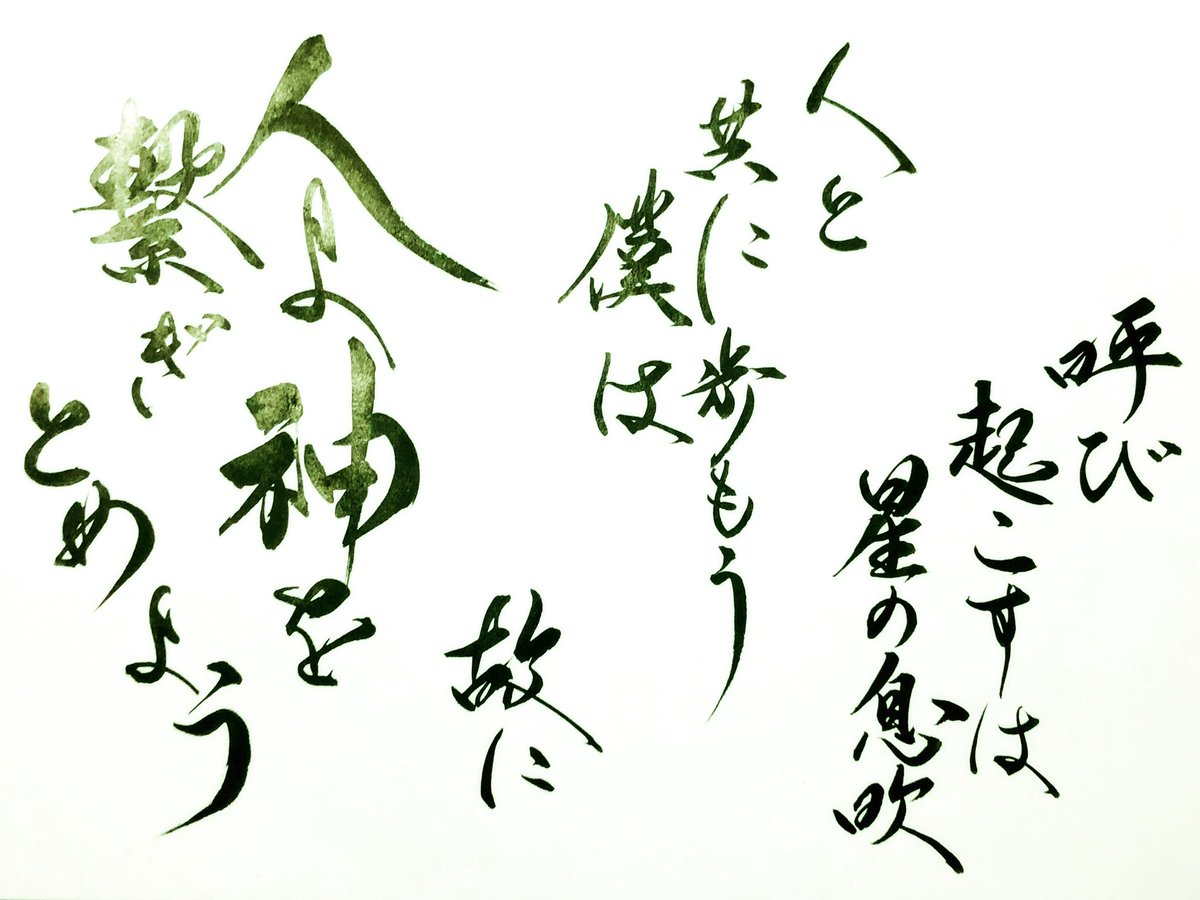 呼び
起こすは
星の息吹
人と
共に歩もう
僕は
故に
人よ神を
繋ぎ
とめよう